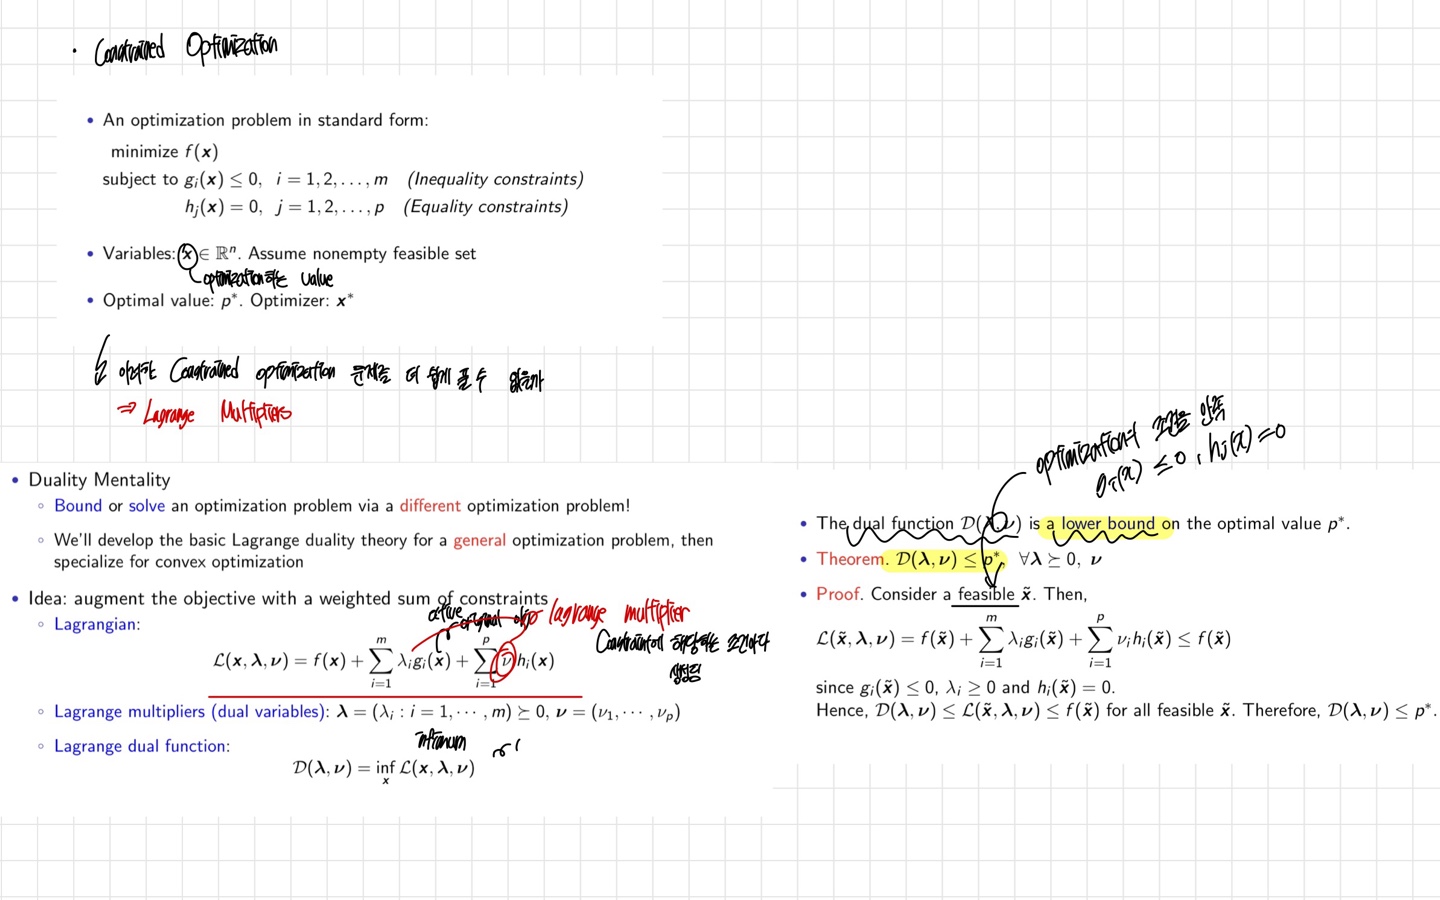 · Constrained Optimization
• An optimization problem in standard form:
minimize f(x)
subject to gᵢ(x) ≤ 0, i = 1, 2, . . . , m (Inequality constraints)
hⱼ(x) = 0, j = 1, 2, . . . , p (Equality constraints)
• Variables: x ∈ ℝⁿ. Assume nonempty feasible set
optimization하는 value
• Optimal value: p*. Optimizer: x*
이러한 Constrained optimization 문제를 더 쉽게 풀 수 없을까
⇒ Lagrange Multipliers
• Duality Mentality
◦ Bound or solve an optimization problem via a different optimization problem!
◦ We'll develop the basic Lagrange duality theory for a general optimization problem, then
specialize for convex optimization
• Idea: augment the objective with a weighted sum of constraints
lagrange multiplier
◦ Lagrangian:
Constraint에 해당하는 조건마다
생성됨
ℒ(x, λ, ν) = f(x) + ∑ᵢ₌₁ᵐ λᵢgᵢ(x) + ∑ᵢ₌₁ᵖ νᵢhᵢ(x)
◦ Lagrange multipliers (dual variables): λ = (λᵢ : i = 1, ··· , m) ⪰ 0, ν = (ν₁, ··· , νₚ)
◦ Lagrange dual function:
infimum
𝒟(λ, ν) = inf ℒ(x, λ, ν)
x
optimization의 조건을 만족
gᵢ(x) ≤ 0, hⱼ(x) = 0
• The dual function 𝒟(λ, ν) is a lower bound on the optimal value p*.
• Theorem. 𝒟(λ, ν) ≤ p*, ∀λ ⪰ 0, ν
• Proof. Consider a feasible x̃. Then,
ℒ(x̃, λ, ν) = f(x̃) + ∑ᵢ₌₁ᵐ λᵢgᵢ(x̃) + ∑ᵢ₌₁ᵖ νᵢhᵢ(x̃) ≤ f(x̃)
since gᵢ(x̃) ≤ 0, λᵢ ≥ 0 and hᵢ(x̃) = 0.
Hence, 𝒟(λ, ν) ≤ ℒ(x̃, λ, ν) ≤ f(x̃) for all feasible x̃. Therefore, 𝒟(λ, ν) ≤ p*.